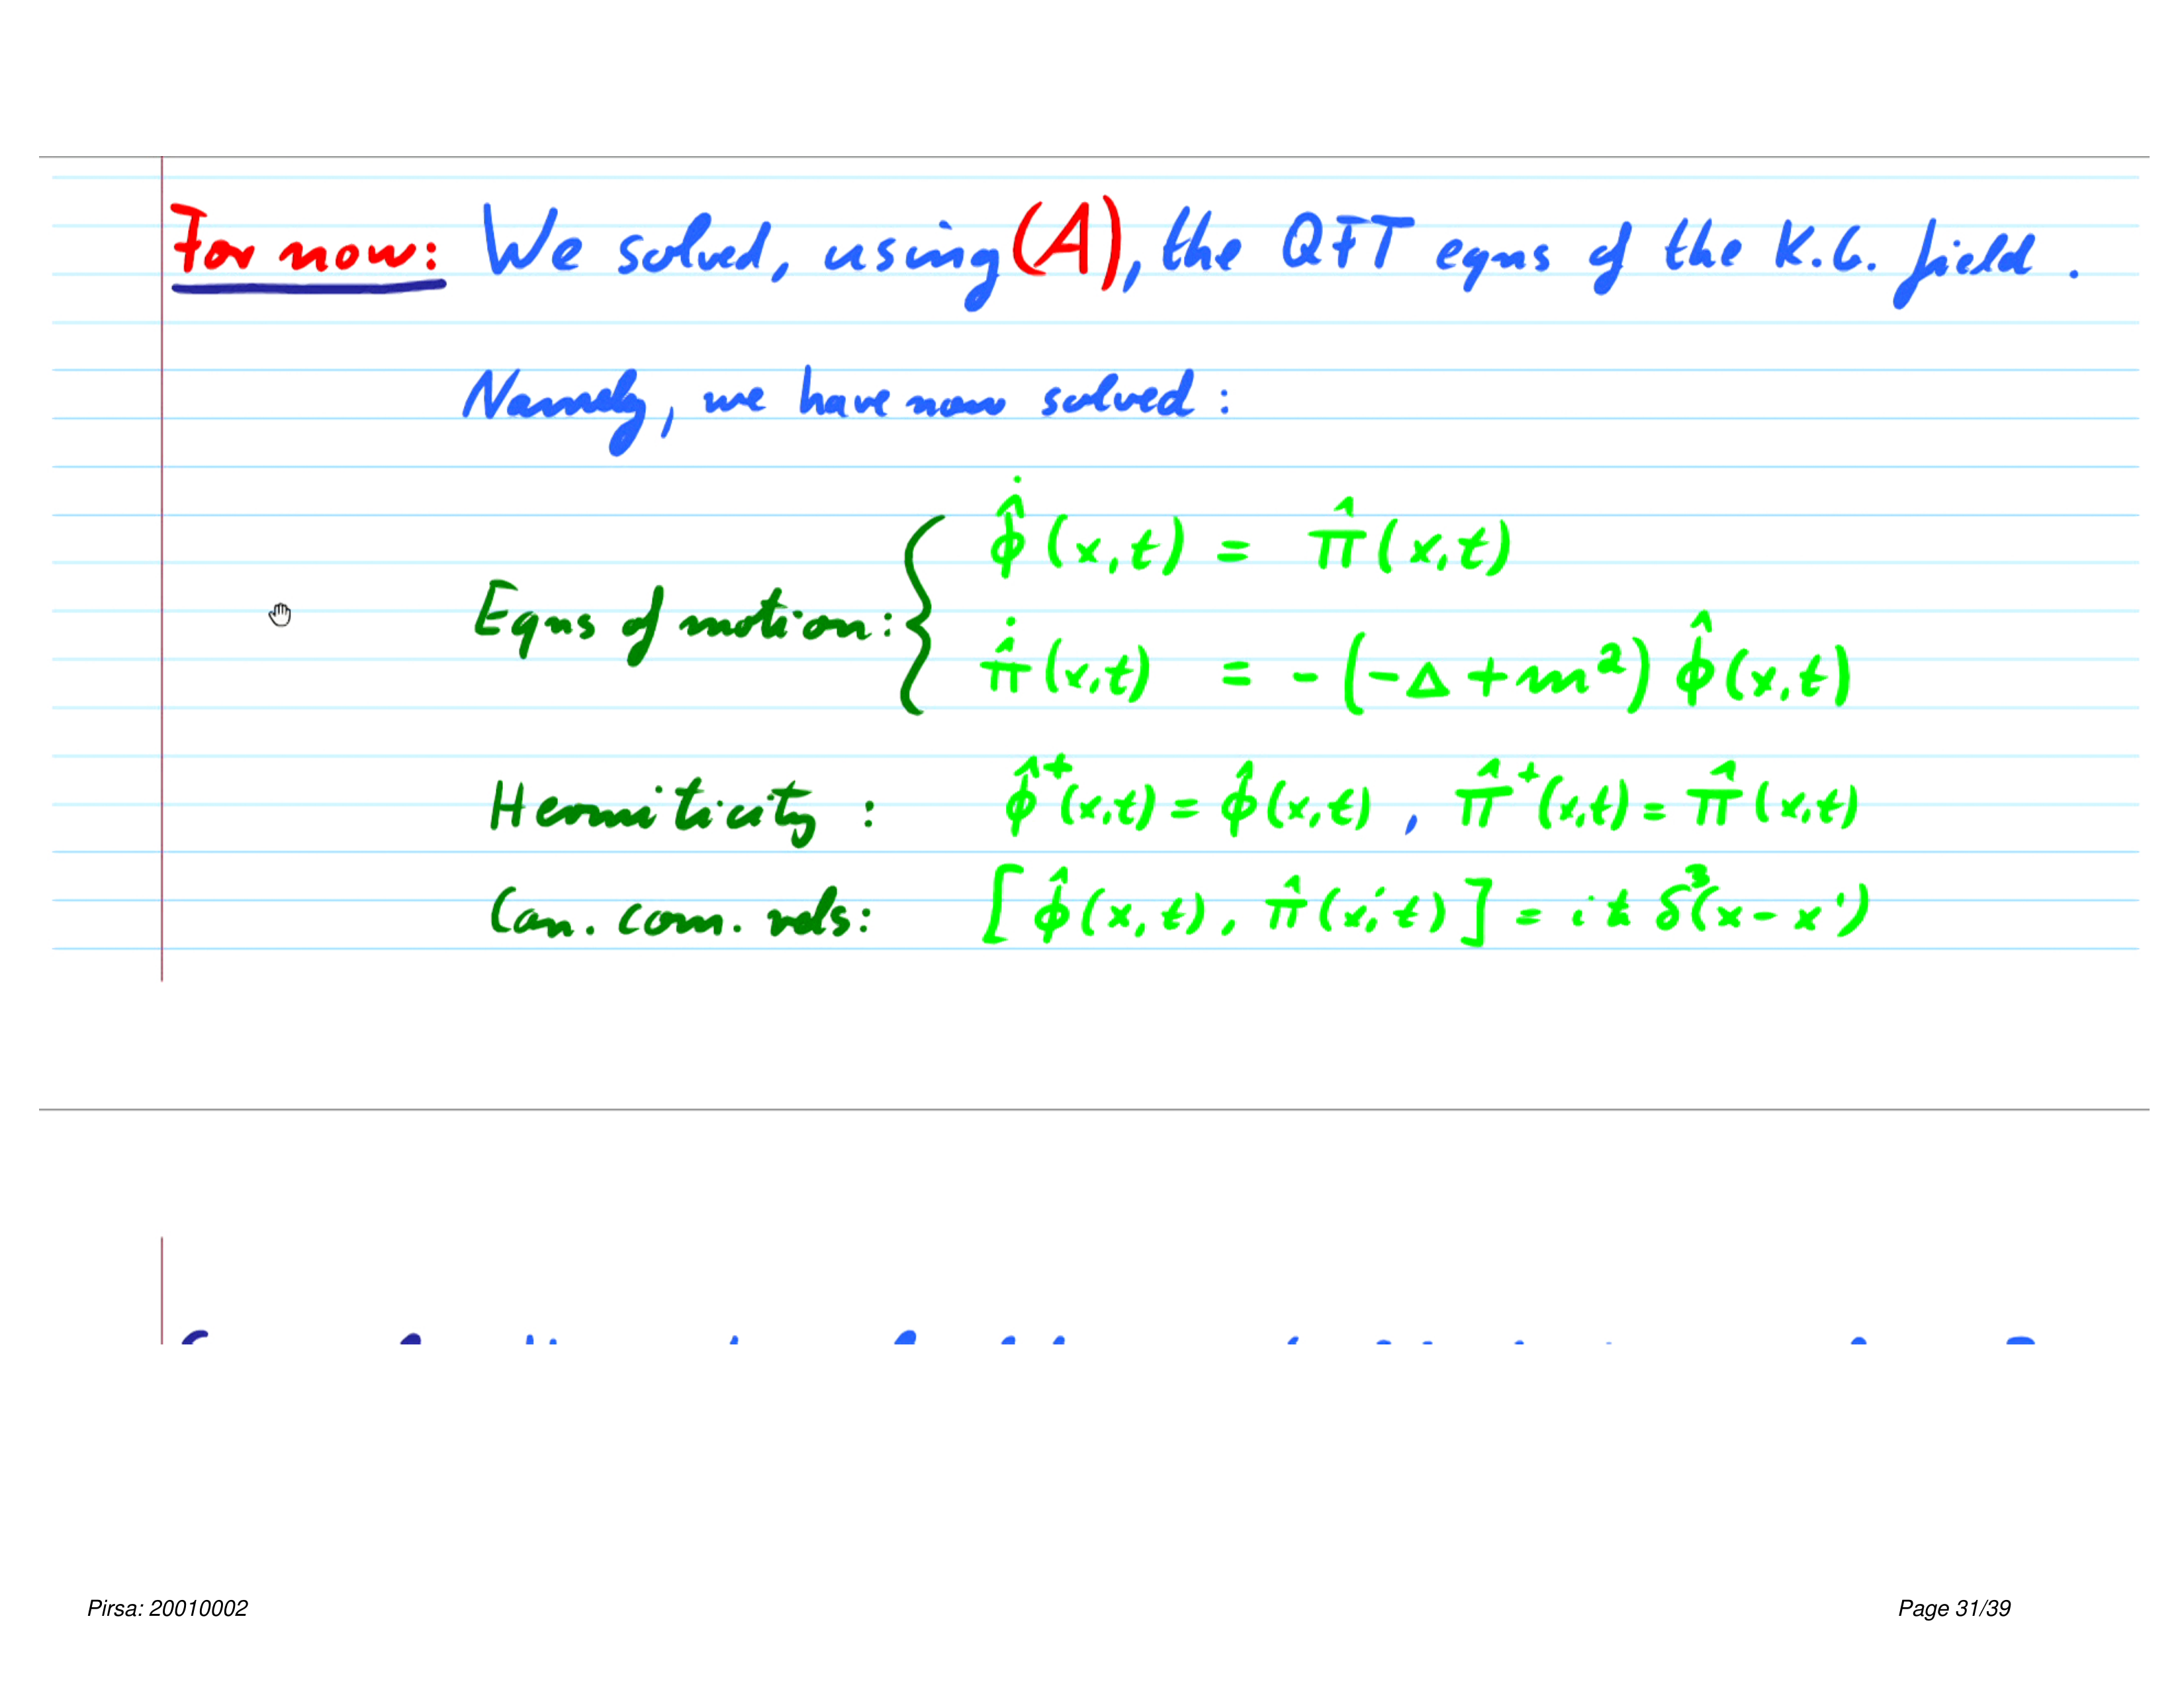 For now: We solved, using (A), the QFT eqns of the K.G. field.
Namely, we have now solved:
Eqns of motion: { φ̂̇(x,t) = π̂(x,t)
π̂̇(x,t) = -(-Δ+m²) φ̂(x,t)
Hermiticity: φ̂†(x,t) = φ̂(x,t), π̂†(x,t) = π̂(x,t)
Can. com. rels: [φ̂(x,t), π̂(x',t)] = iħ δ³(x-x')
Pirsa: 20010002
Page 31/39